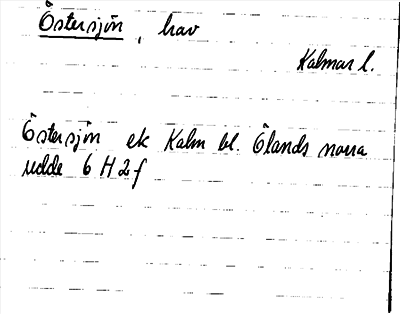 Östersjön, hav
Kalmar l.
Östersjön ek Kalm bl. Ölands norra
udde 6 H 2 f